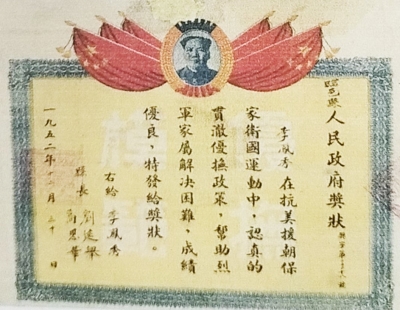 人民政府獎狀
李鳳秀在抗美援朝保
家衛國運動中,認真的
貫澈優撫政策,幫助烈
軍家屬解決困難,成績
優良,特發給獎狀。
右給 李鳳秀
縣長
一九五二年 月 日